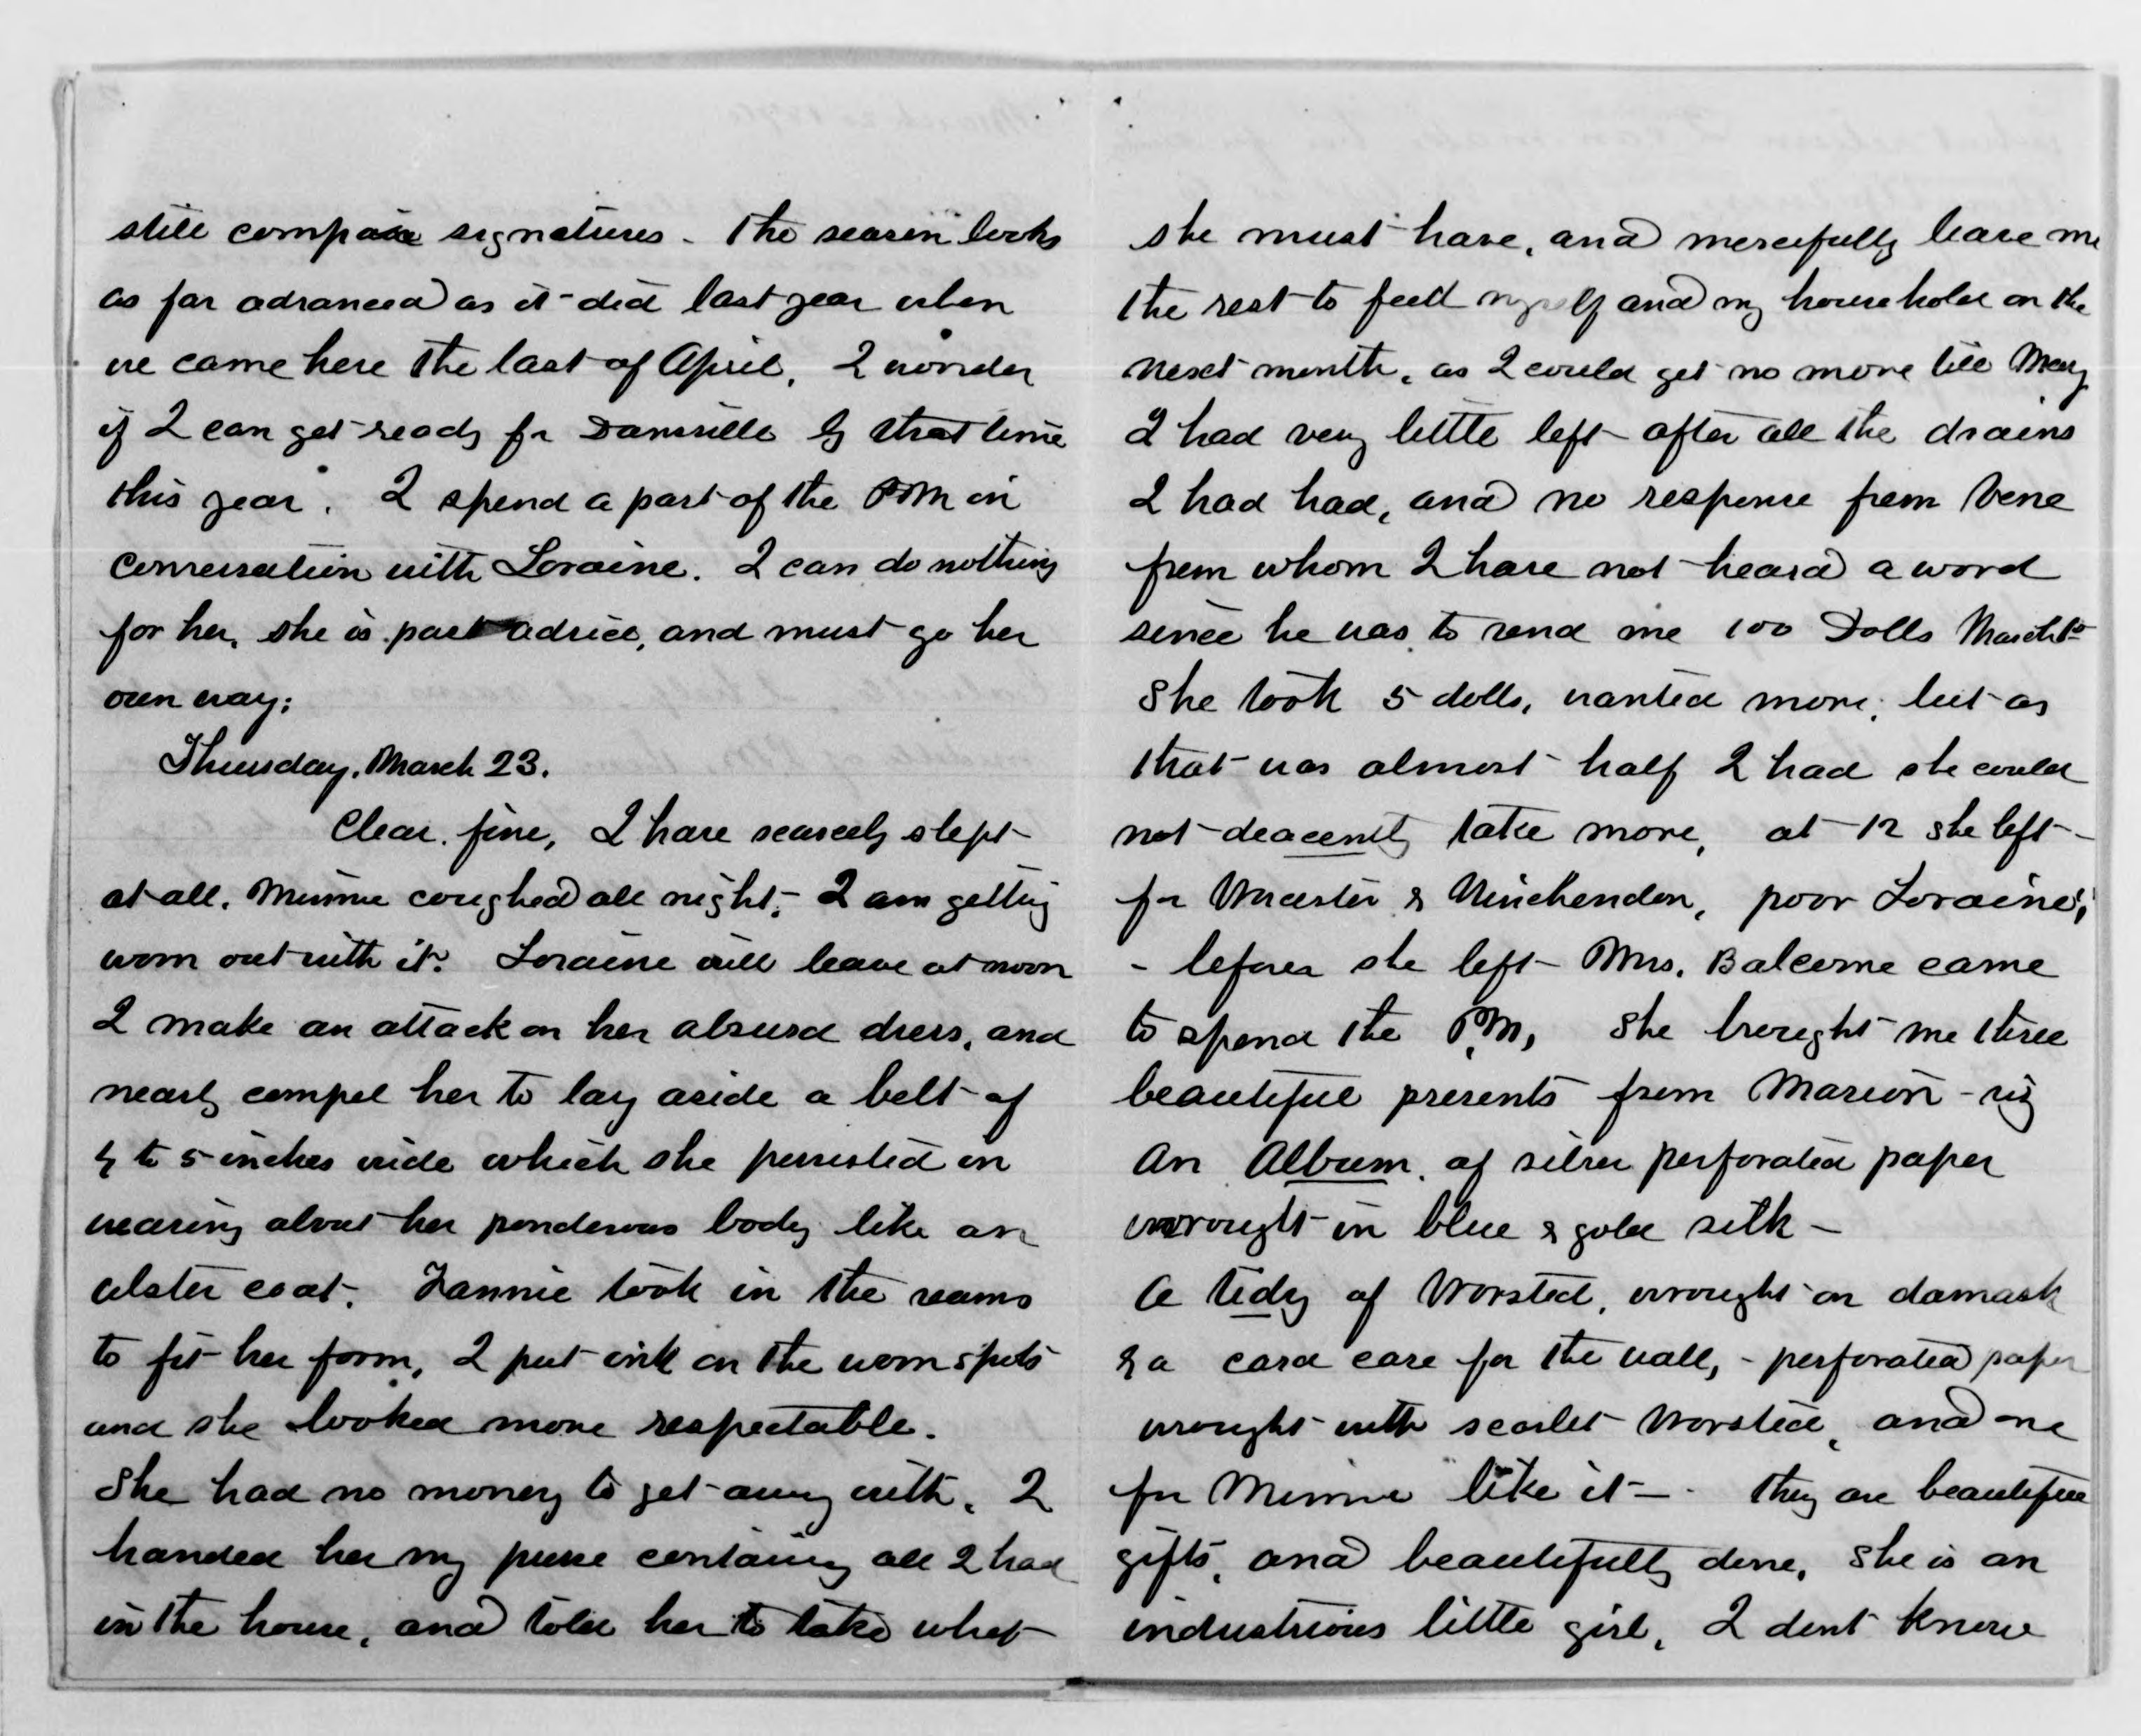 still compare signatures - The season looks
as far advanced as it did last year when
we came here the last of April, I wonder
if I can get ready for Dansville by that time
this year. I spend a part of the P.M in
conversation with Loraine. I can do nothing
for her, she is past advice, and must go her
own way;
Thursday, March 23.
Clear, fine, I have scarcely slept
at all. Minnie coughed all night, I am getting
worn out with it. Loraine will leave at noon
I make an attack on her absurd dress, and
nearly compel her to lay aside a belt of
4 to 5 inches wide which she persisted in
wearing about her ponderous body like an
ulster coat. Fannie took in the seams
to fit her form, I put ink on the worn spots
and she looked more respectable.
She had no money to get away with, I
handed her my purse containing all I had
in the house, and told her to take what
she must have, and mercifully leave me
the rest to feed myself and my household on the
next month, as I could get no more till May
I had very little left after all the drains
I had had, and no response from Vene
from whom I have not heard a word
since he was to send me 100 Dolls March 1st
She took 5 dolls, wanted more, but as
that was almost half I had she could
not deacently take more, at 12 she left -
for Worcester & Winchendon, poor Loraine!,
- before she left - Mrs. Balcome came
to spend the P.M, She brought me three
beautiful presents from Marion - viz
An Album, of silver perforated paper
wrought in blue & gold silk -
a tidy of Worsted, wrought on damask
& a card case for the wall, - perforated paper
wrought with scarlet Worsted, and one
for Minnie like it - They are beautiful
gifts, and beautifully done, She is an
industrious little girl, I dont know